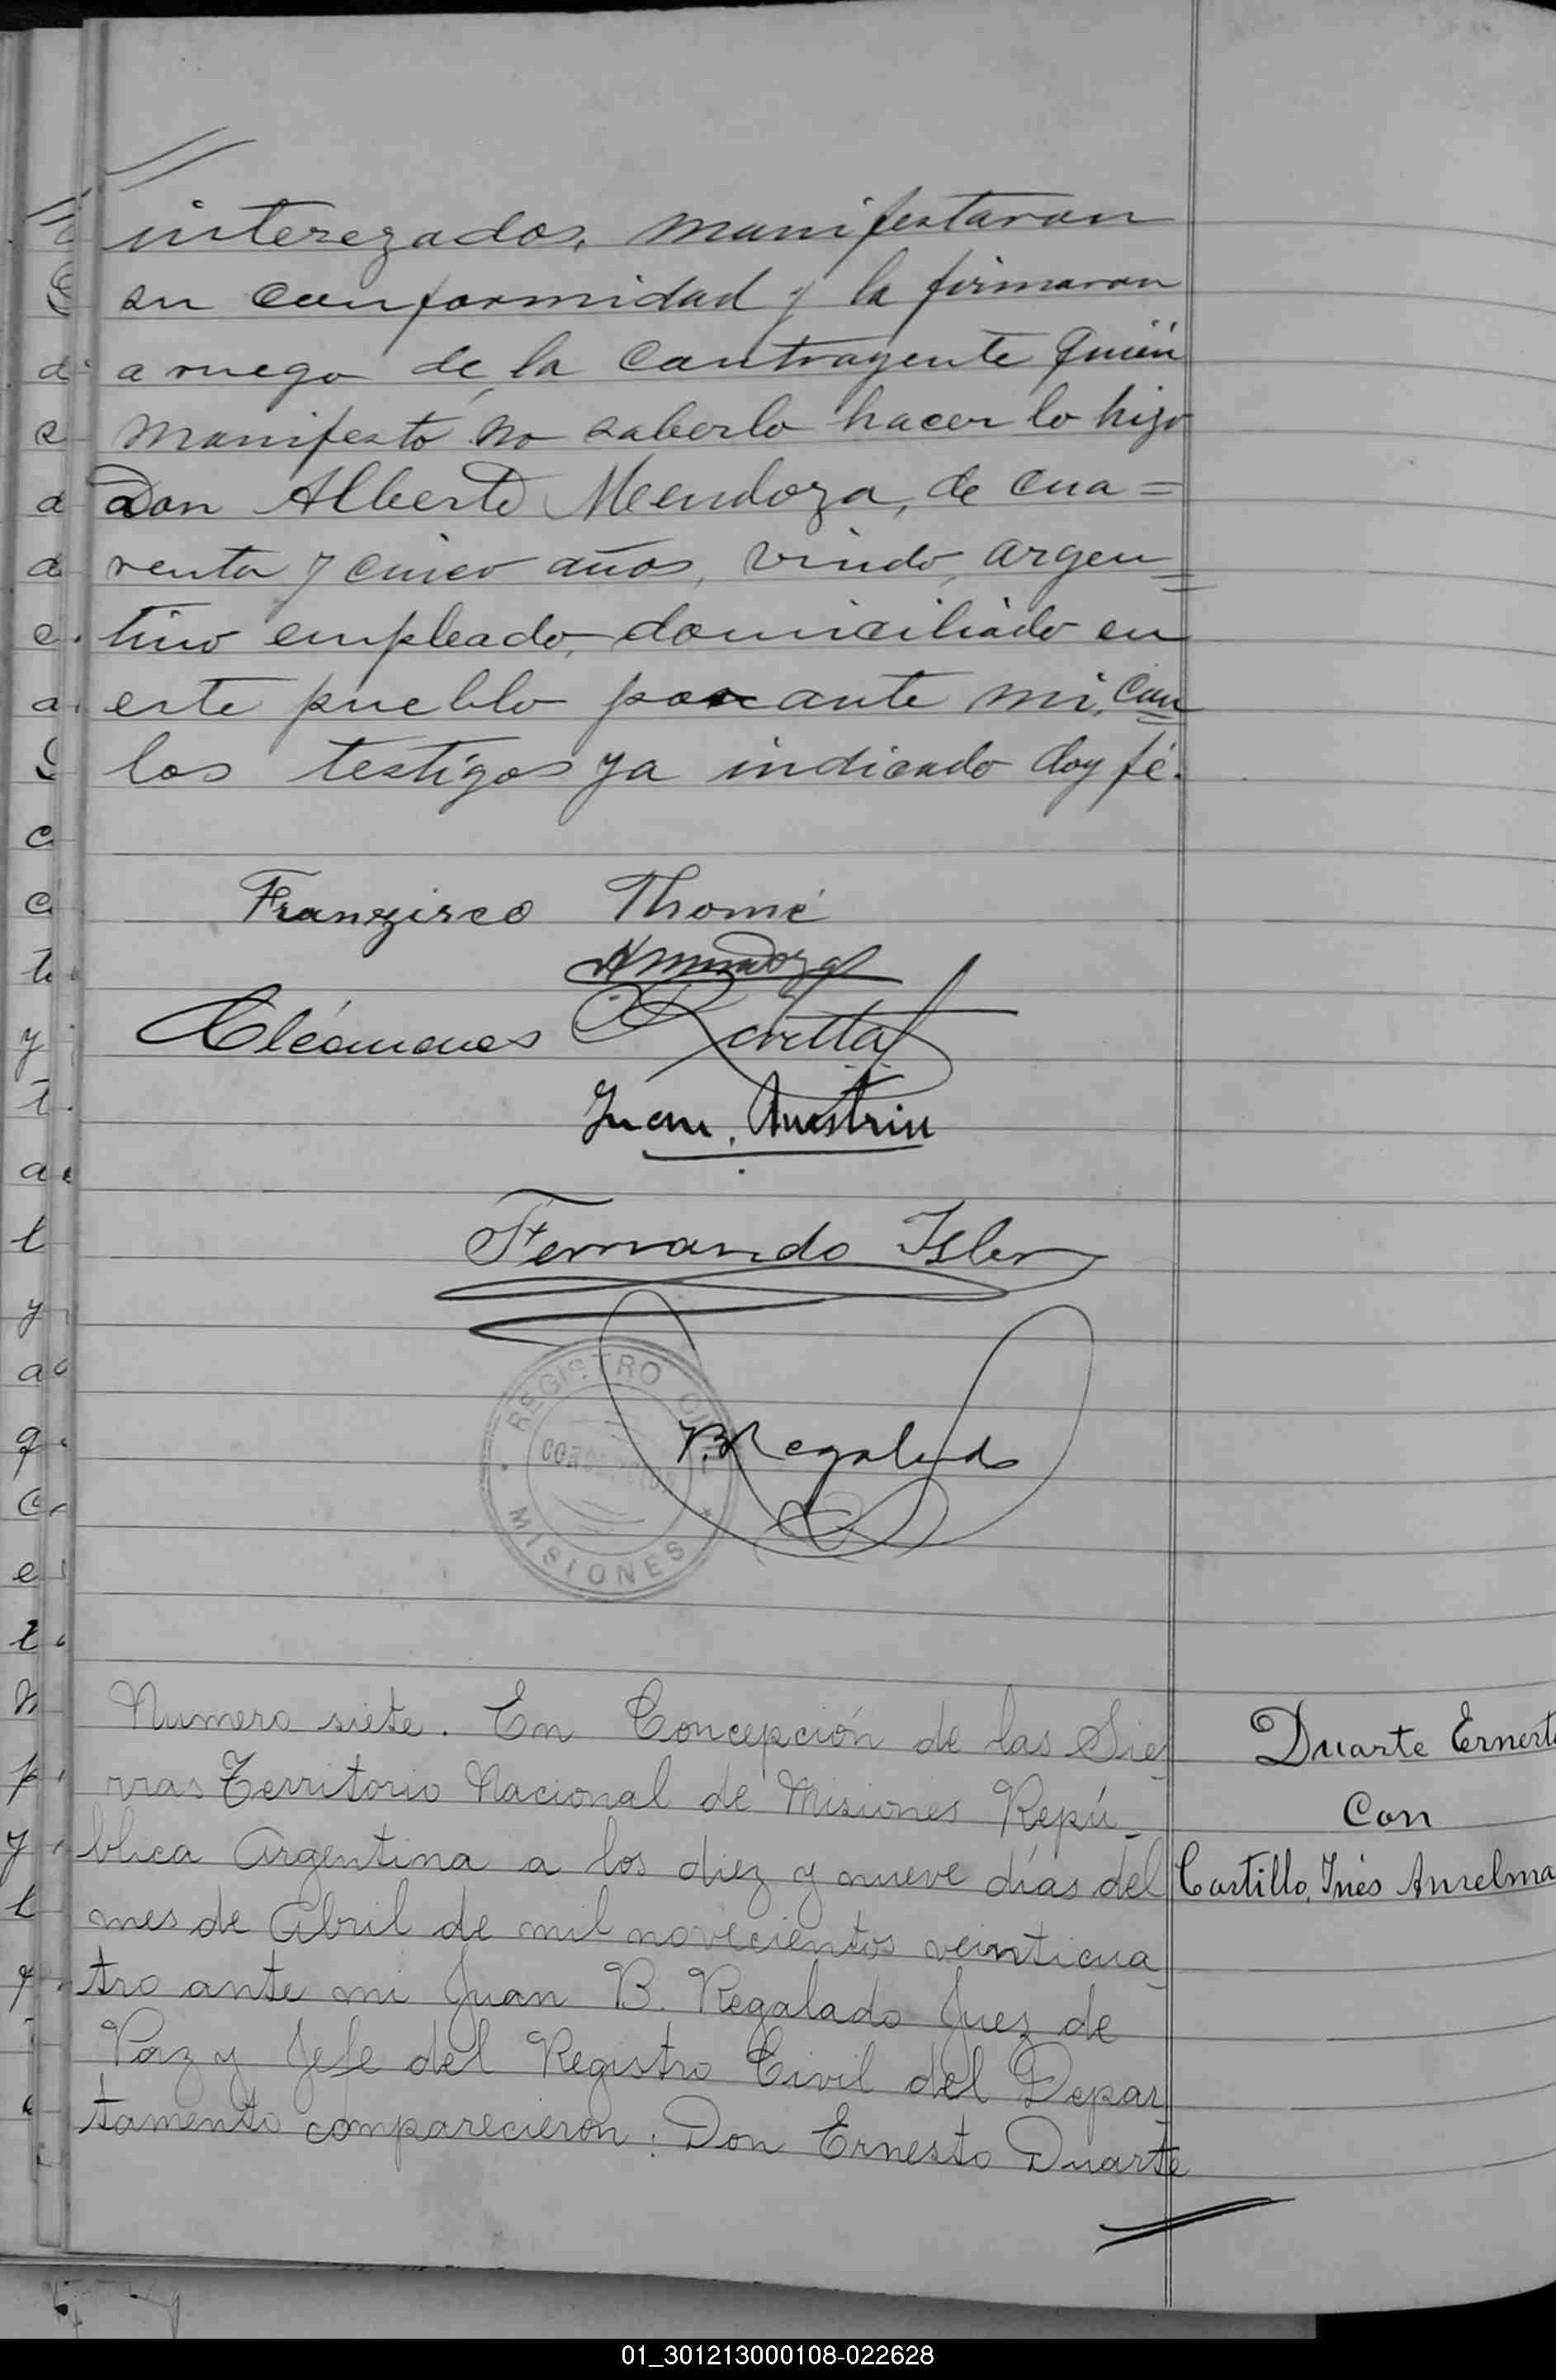 interezados, manifestaron
su conformidad y la firmaron
a ruego de la contrayente quién
manifestó no saberlo hacer lo hizo
Don Alberto Mendoza, de cua=
renta y cinco años, viudo, argen=
tino empleado, domiciliado en
este pueblo por ante mi, con
los testigos ya indicado doy fé.
Franzisco Thomé
AMendoza
Cléomenes Rovetta
Juan Austrin
Fernando Isler
REGISTRO CIVIL
CONCEPCION
MISIONES
B. Regalado
Numero siete. En Concepción de las Sie_
rras Territorio Nacional de Misiones Repú_
blica Argentina a los diez y nueve días del
mes de Abril de mil novecientos veinticua_
tro ante mi Juan B. Regalado Juez de
Paz y Jefe del Registro Civil del Depar_
tamento comparecieron: Don Ernesto Duarte
Duarte Ernesto
Con
Castillo, Inés Anselma
01_301213000108-022628